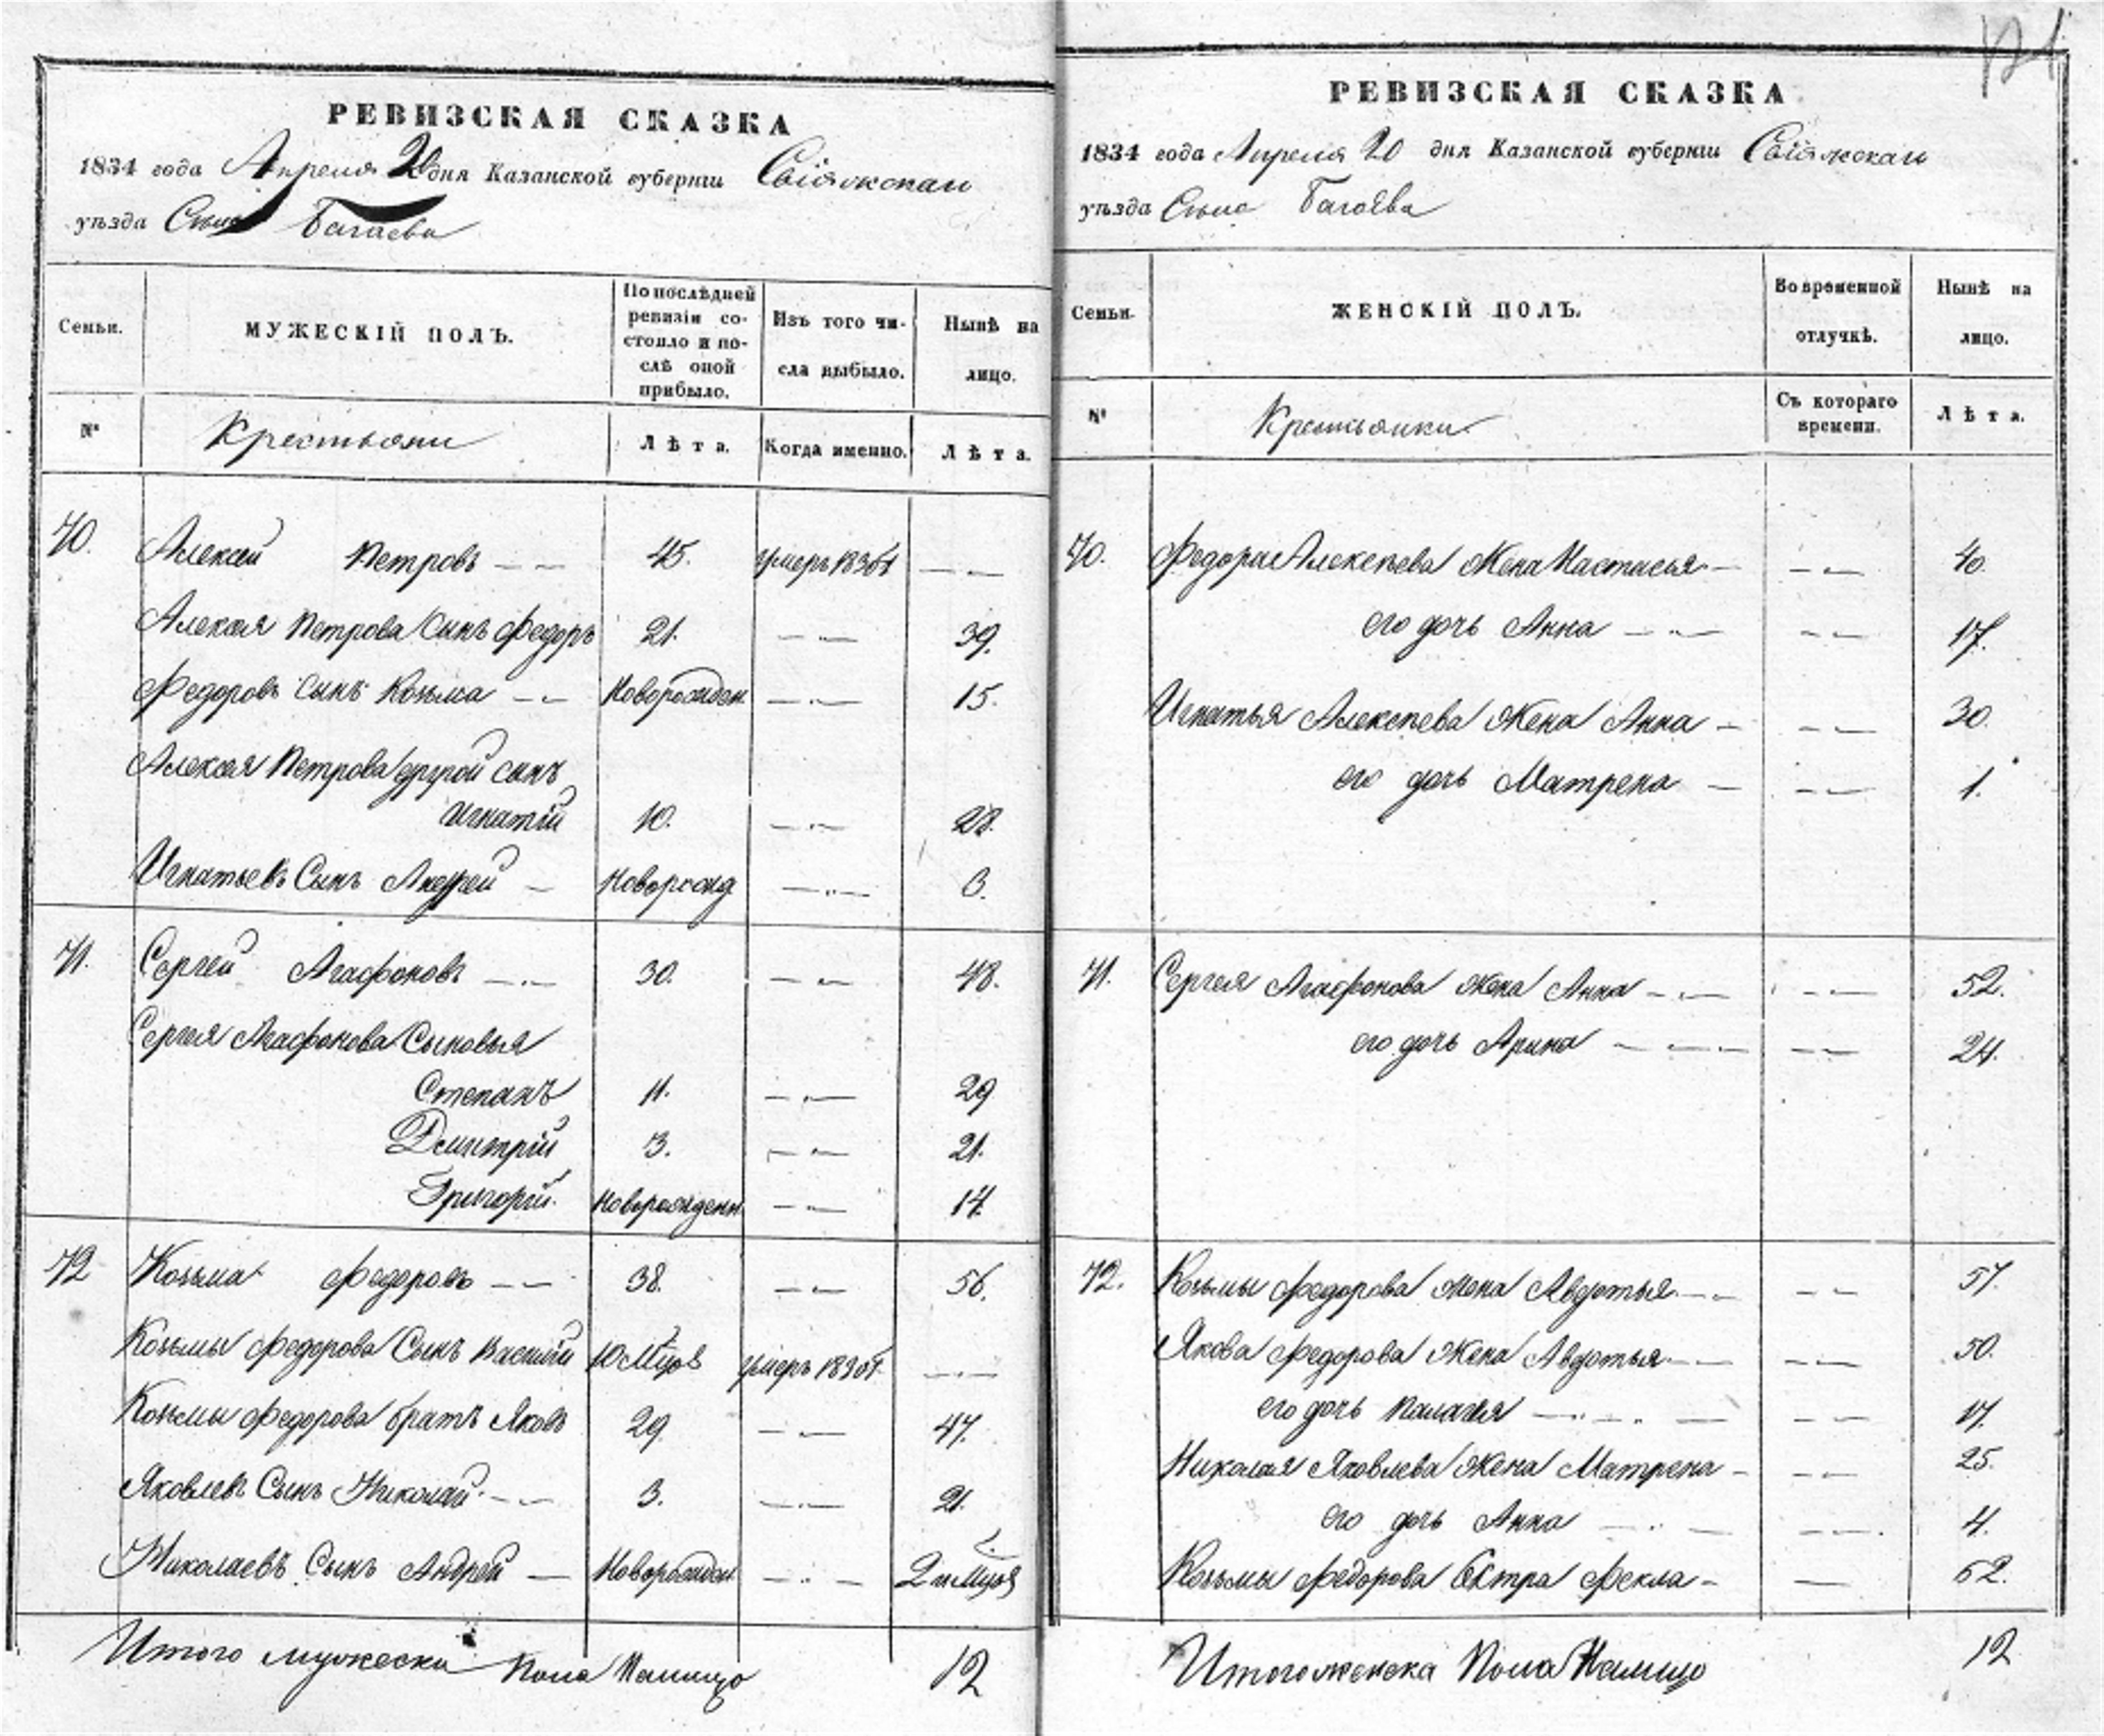 121
РЕВИЗСКАЯ СКАЗКА
1834 года Апреля 20 дня Казанской губернїи Свіяжскаи
уѣзда Сѣло Багаева
Семьи.
МУЖЕСКІЙ ПОЛЪ.
По послѣдней ревизіи состояло и послѣ оной прибыло.
Изъ того числа выбыло.
Нынѣ на лицо.
№
Крестьяни
Лѣта.
Когда именно.
Лѣта.
70. Алексей Петровъ 45. умеръ
Алексея Петрова Сынъ Федоръ 21. 39.
Федоровъ Сынъ Козьма Новорожден. 15.
Алексея Петрова другой сынъ
Игнатій 10. 28.
Игнатьевъ Сынъ Андрей Новорожд 3.
71. Сергей Агафоновъ 30. 48.
Сергея Агафонова Сыновья
Степанъ 11. 29
Дмитрій 3. 21.
Григорій. Новорожденн 14.
72 Козьма Федоровъ 38. 56.
Козьмы Федорова Сынъ Василій 10 Мцов умеръ
Козьмы Федорова братъ Яковъ 29. 47.
Яковлевъ Сынъ Николай 3. 21.
Николаевъ Сынъ Андрей Новорожден 2 Мцов
Итого мужеска Пола Налицо 12
РЕВИЗСКАЯ СКАЗКА
1834 года Апреля 20 дня Казанской губернїи Свіяжскаи
уѣзда Сѣло Багаева
Семьи.
ЖЕНСКІЙ ПОЛЪ.
Во временной отлучкѣ.
Нынѣ на лицо.
№
Крестьянки
Съ котораго времени.
Лѣта.
70. Федора Алексѣева Жена Настасья 40.
его дочь Анна 17.
Игнатья Алексѣева Жена Анна 30.
его дочь Матрена 1.
71. Сергея Агафонова жена Анна 52.
его дочь Арина 24.
72. Козьмы Федорова жена Авдотья 57.
Якова Федорова Жена Авдотья 50.
его дочь Палагея 17.
Николая Яковлева Жена Матрена 25.
его дочь Анна 4.
Козьмы Федорова Сѣстра Фекла 62.
Итого женска Пола Налицо 12